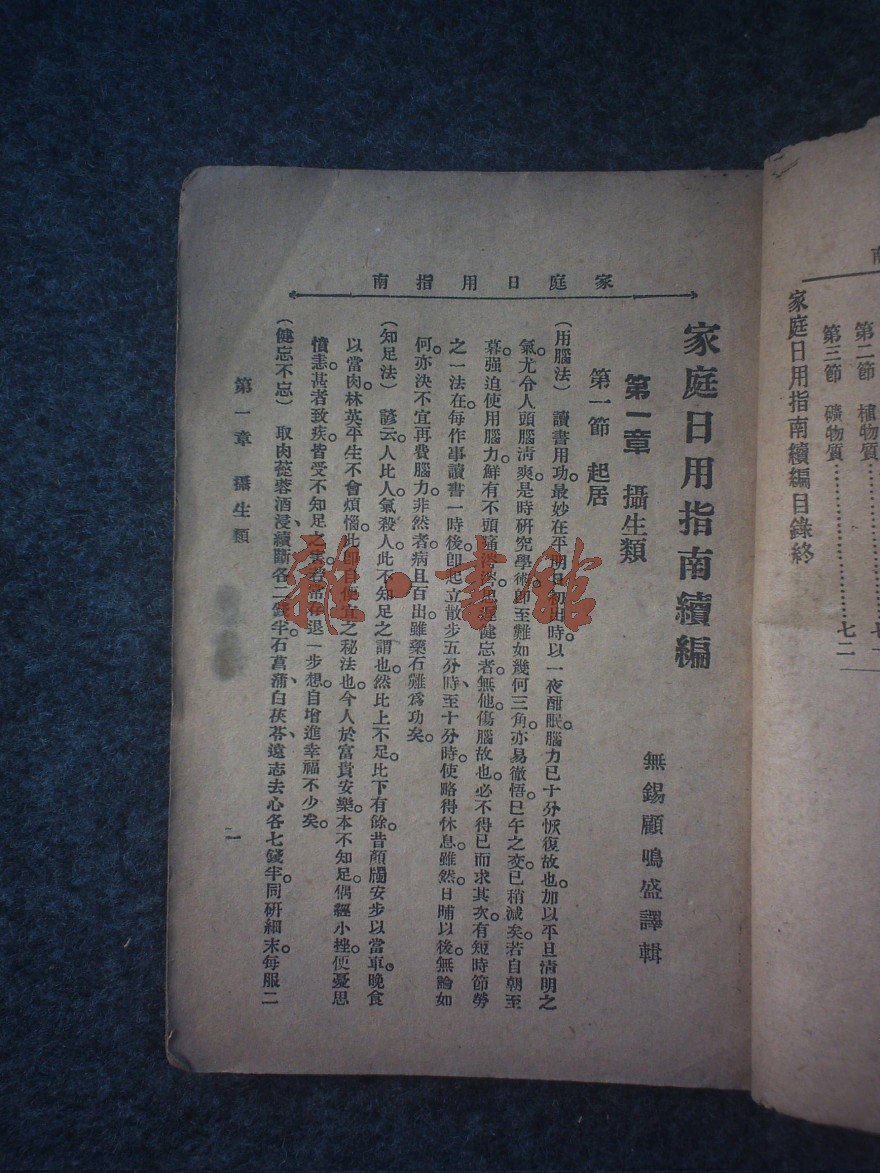 第二節 植物質
第三節 礦物質……………七二
家庭日用指南續編目錄終
家庭日用指南
家庭日用指南續編
無錫顧鳴盛譯輯
第一章 攝生類
第一節 起居
(用腦法) 讀書用功。最妙在平明日初出時。以一夜酣眠。腦力已十分恢復故也。加以平旦清明之
氣。尤令人頭腦清爽。是時硏究學術。卽至難如幾何三角。亦易徹悟。巳午之交。已稍減矣。若自朝至
暮。强迫使用腦力。鮮有不頭痛涔涔。思遲健忘者。無他。傷腦故也。必不得已而求其次。有短時節勞
之一法。在每作事讀書一時後。卽起立散步五分時、至十分時。使略得休息。雖然。日晡以後。無論如
何。亦決不宜再費腦力。非然者。病且百出。雖藥石難爲功矣。
(知足法) 諺云。人比人氣殺人。此不知足之謂也。然比上不足。比下有餘。昔顏斶安步以當車。晚食
以當肉。林英平生不會煩惱。此卽自便宜之秘法也。今人於富貴安樂。本不知足。偶經小挫。便憂思
憤恚。甚者致疾。皆受不知足之害。若常存退一步想。自增進幸福不少矣。
(健忘不忘) 取肉蓯蓉酒浸、續斷各二錢半。石菖蒲、白茯苓、遠志去心各七錢半。同研細末。每服二
第一章 攝生類
一
雜·書館